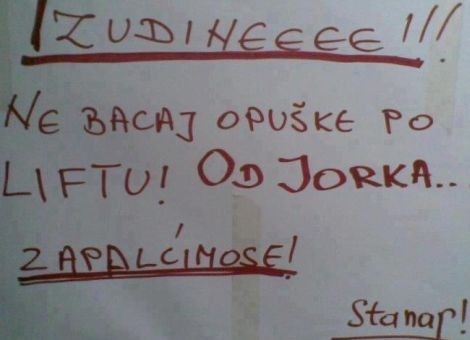 IZUDINEEEE!!!
NE BACAJ OPUŠKE PO
LIFTU! OD JORKA..
ZAPALĆIMOSE!
Stanar!